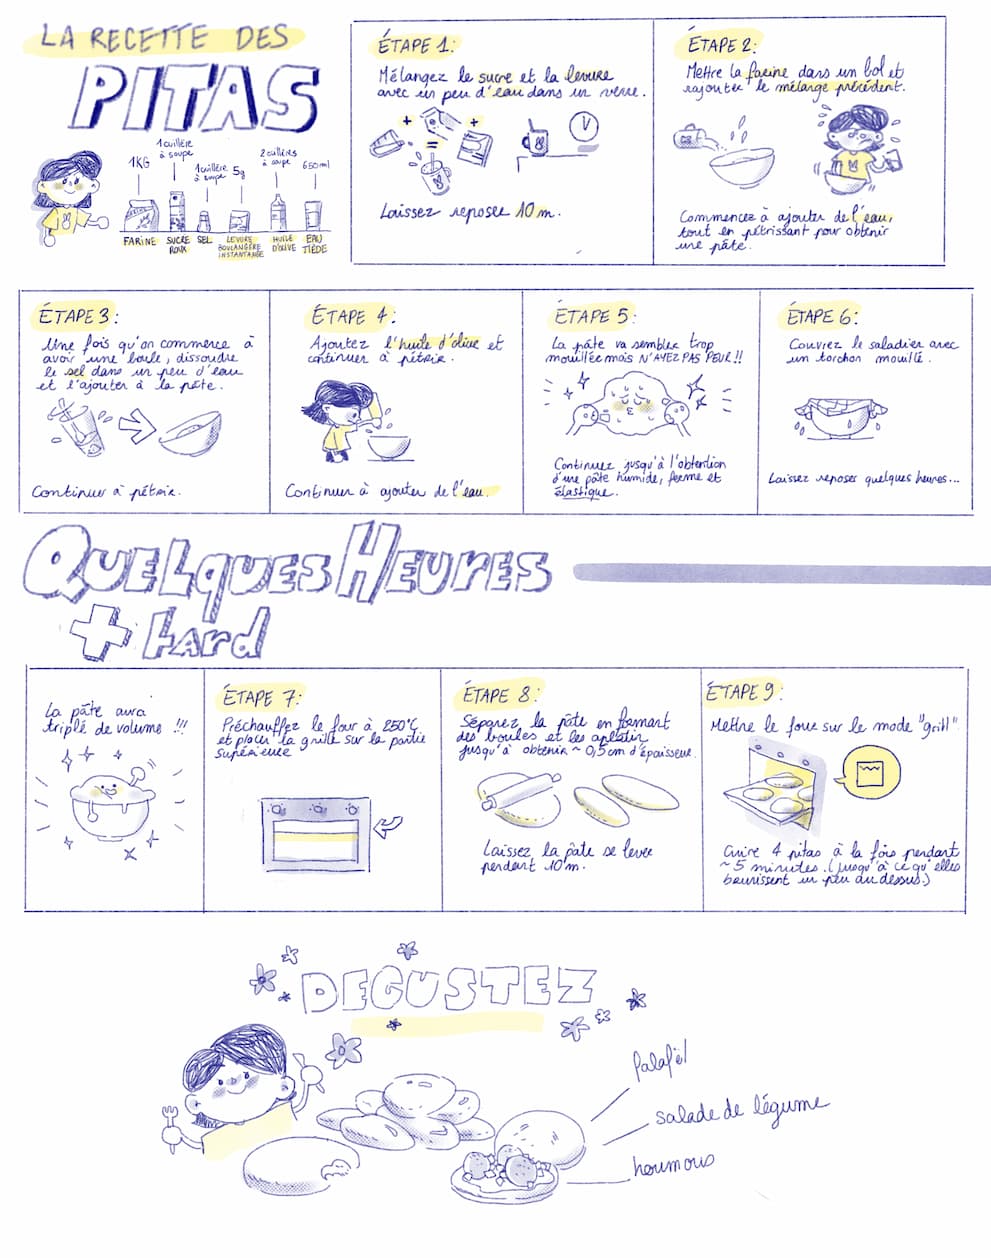 LA RECETTE DES
PITAS
1KG
1 cuillère
à soupe
1 cuillère
à soupe
5g
2 cuillères
à soupe
650ml
FARINE
SUCRE
ROUX
SEL
LEVURE
BOULANGÈRE
INSTANTANÉE
HUILE
D'OLIVE
EAU
TIÈDE
ÉTAPE 1:
Mélangez le sucre et la levure
avec un peu d'eau dans un verre.
Laissez reposer 10 m.
ÉTAPE 2:
Mettre la farine dans un bol et
rajouter le mélange précédent.
Commencez à ajouter de l'eau,
tout en pétrissant pour obtenir
une pâte.
ÉTAPE 3:
Une fois qu'on commence à
avoir une boule, dissoudre
le sel dans un peu d'eau
et l'ajouter à la pâte.
Continuer à pétrir.
ÉTAPE 4:
Ajoutez l'huile d'olive et
continuer à pétrir.
Continuer à ajouter de l'eau.
ÉTAPE 5:
La pâte va sembler trop
mouillée mais N'AYEZ PAS PEUR!!
Continuez jusqu'à l'obtention
d'une pâte humide, ferme et
élastique.
ÉTAPE 6:
Couvrez le saladier avec
un torchon mouillé.
Laissez reposer quelques heures...
QUELQUES HEURES
+ tard
La pâte aura
triplé de volume !!!
ÉTAPE 7:
Préchauffez le four à 250°C
et placer la grille sur la partie
supérieure
ÉTAPE 8:
Séparez la pâte en formant
des boules et les aplatir
jusqu'à obtenir ~ 0,5cm d'épaisseur.
Laissez la pâte se lever
pendant 10 m.
ÉTAPE 9:
Mettre le four sur le mode "grill".
Cuire 4 pitas à la fois pendant
~ 5 minutes. (jusqu'à ce qu'elles
bourissent un peu du dessus.)
DEGUSTEZ
falafel
salade de légume
houmous